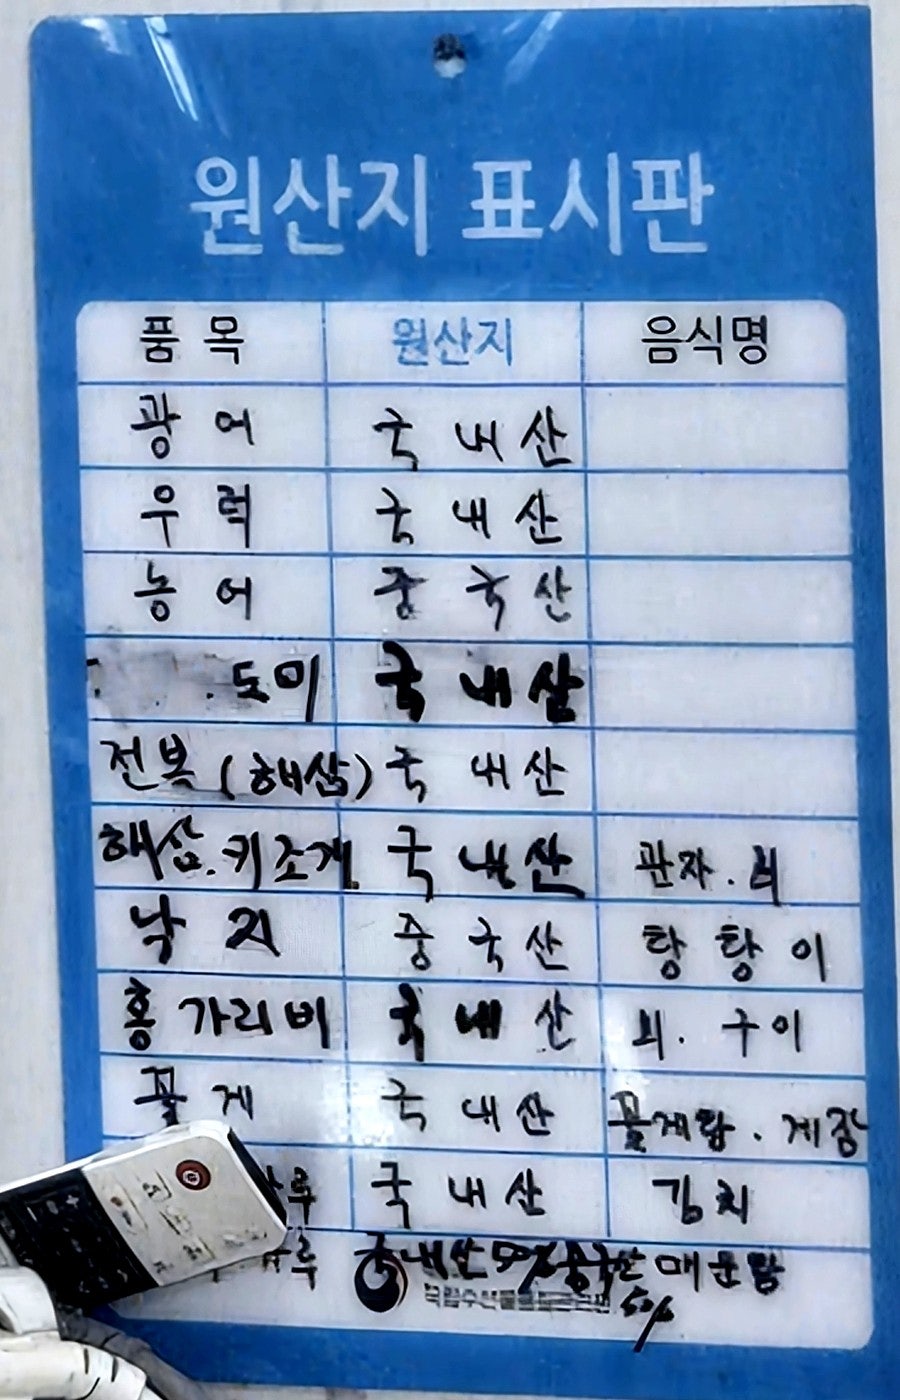 원산지 표시판
품목 원산지 음식명
광어 국내산
우럭 국내산
농어 중국산
도미 국내산
전복(해삼) 국내산
해삼.키조개 국내산 관자.회
낙지 중국산 탕탕이
홍가리비 국내산 회.구이
꽃게 국내산 꽃게탕.게장
국내산 김치
국내산 50% 중국산 매운탕
50%